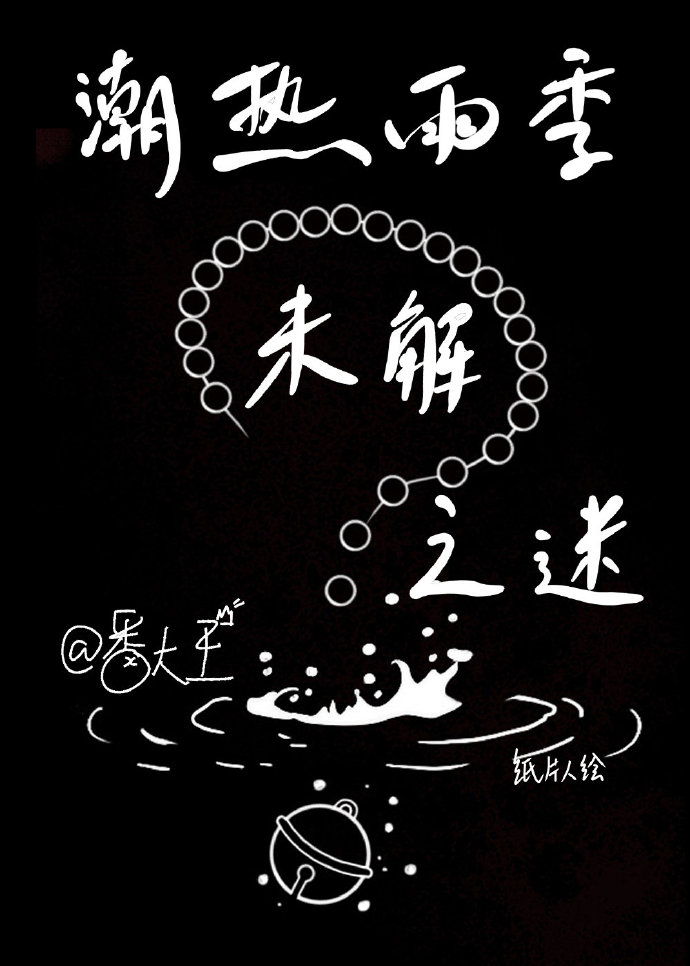 潮热雨季
未解
之迷
@番大王
纸片人绘